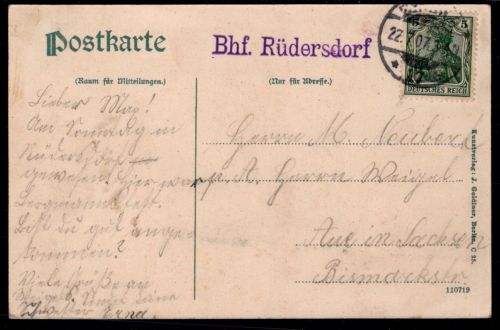 Postkarte
Bhf. Rüdersdorf
5
DEUTSCHES REICH
(Raum für Mitteilungen.)
(Nur für Adresse.)
Lieber Max!
Am Sonntag in
Rüdersdorf
gewesen. Hier war
Bergmannsfest.
Bist du gut ange-
kommen?
Viele Grüße an
deine
Schwester Erna.
Herrn M. Neubert
p. A. Herrn Weigel
Aue in Sachsen
Bismarckstr.
Kunstverlag: J. Goldiner, Berlin, C 25.
110719